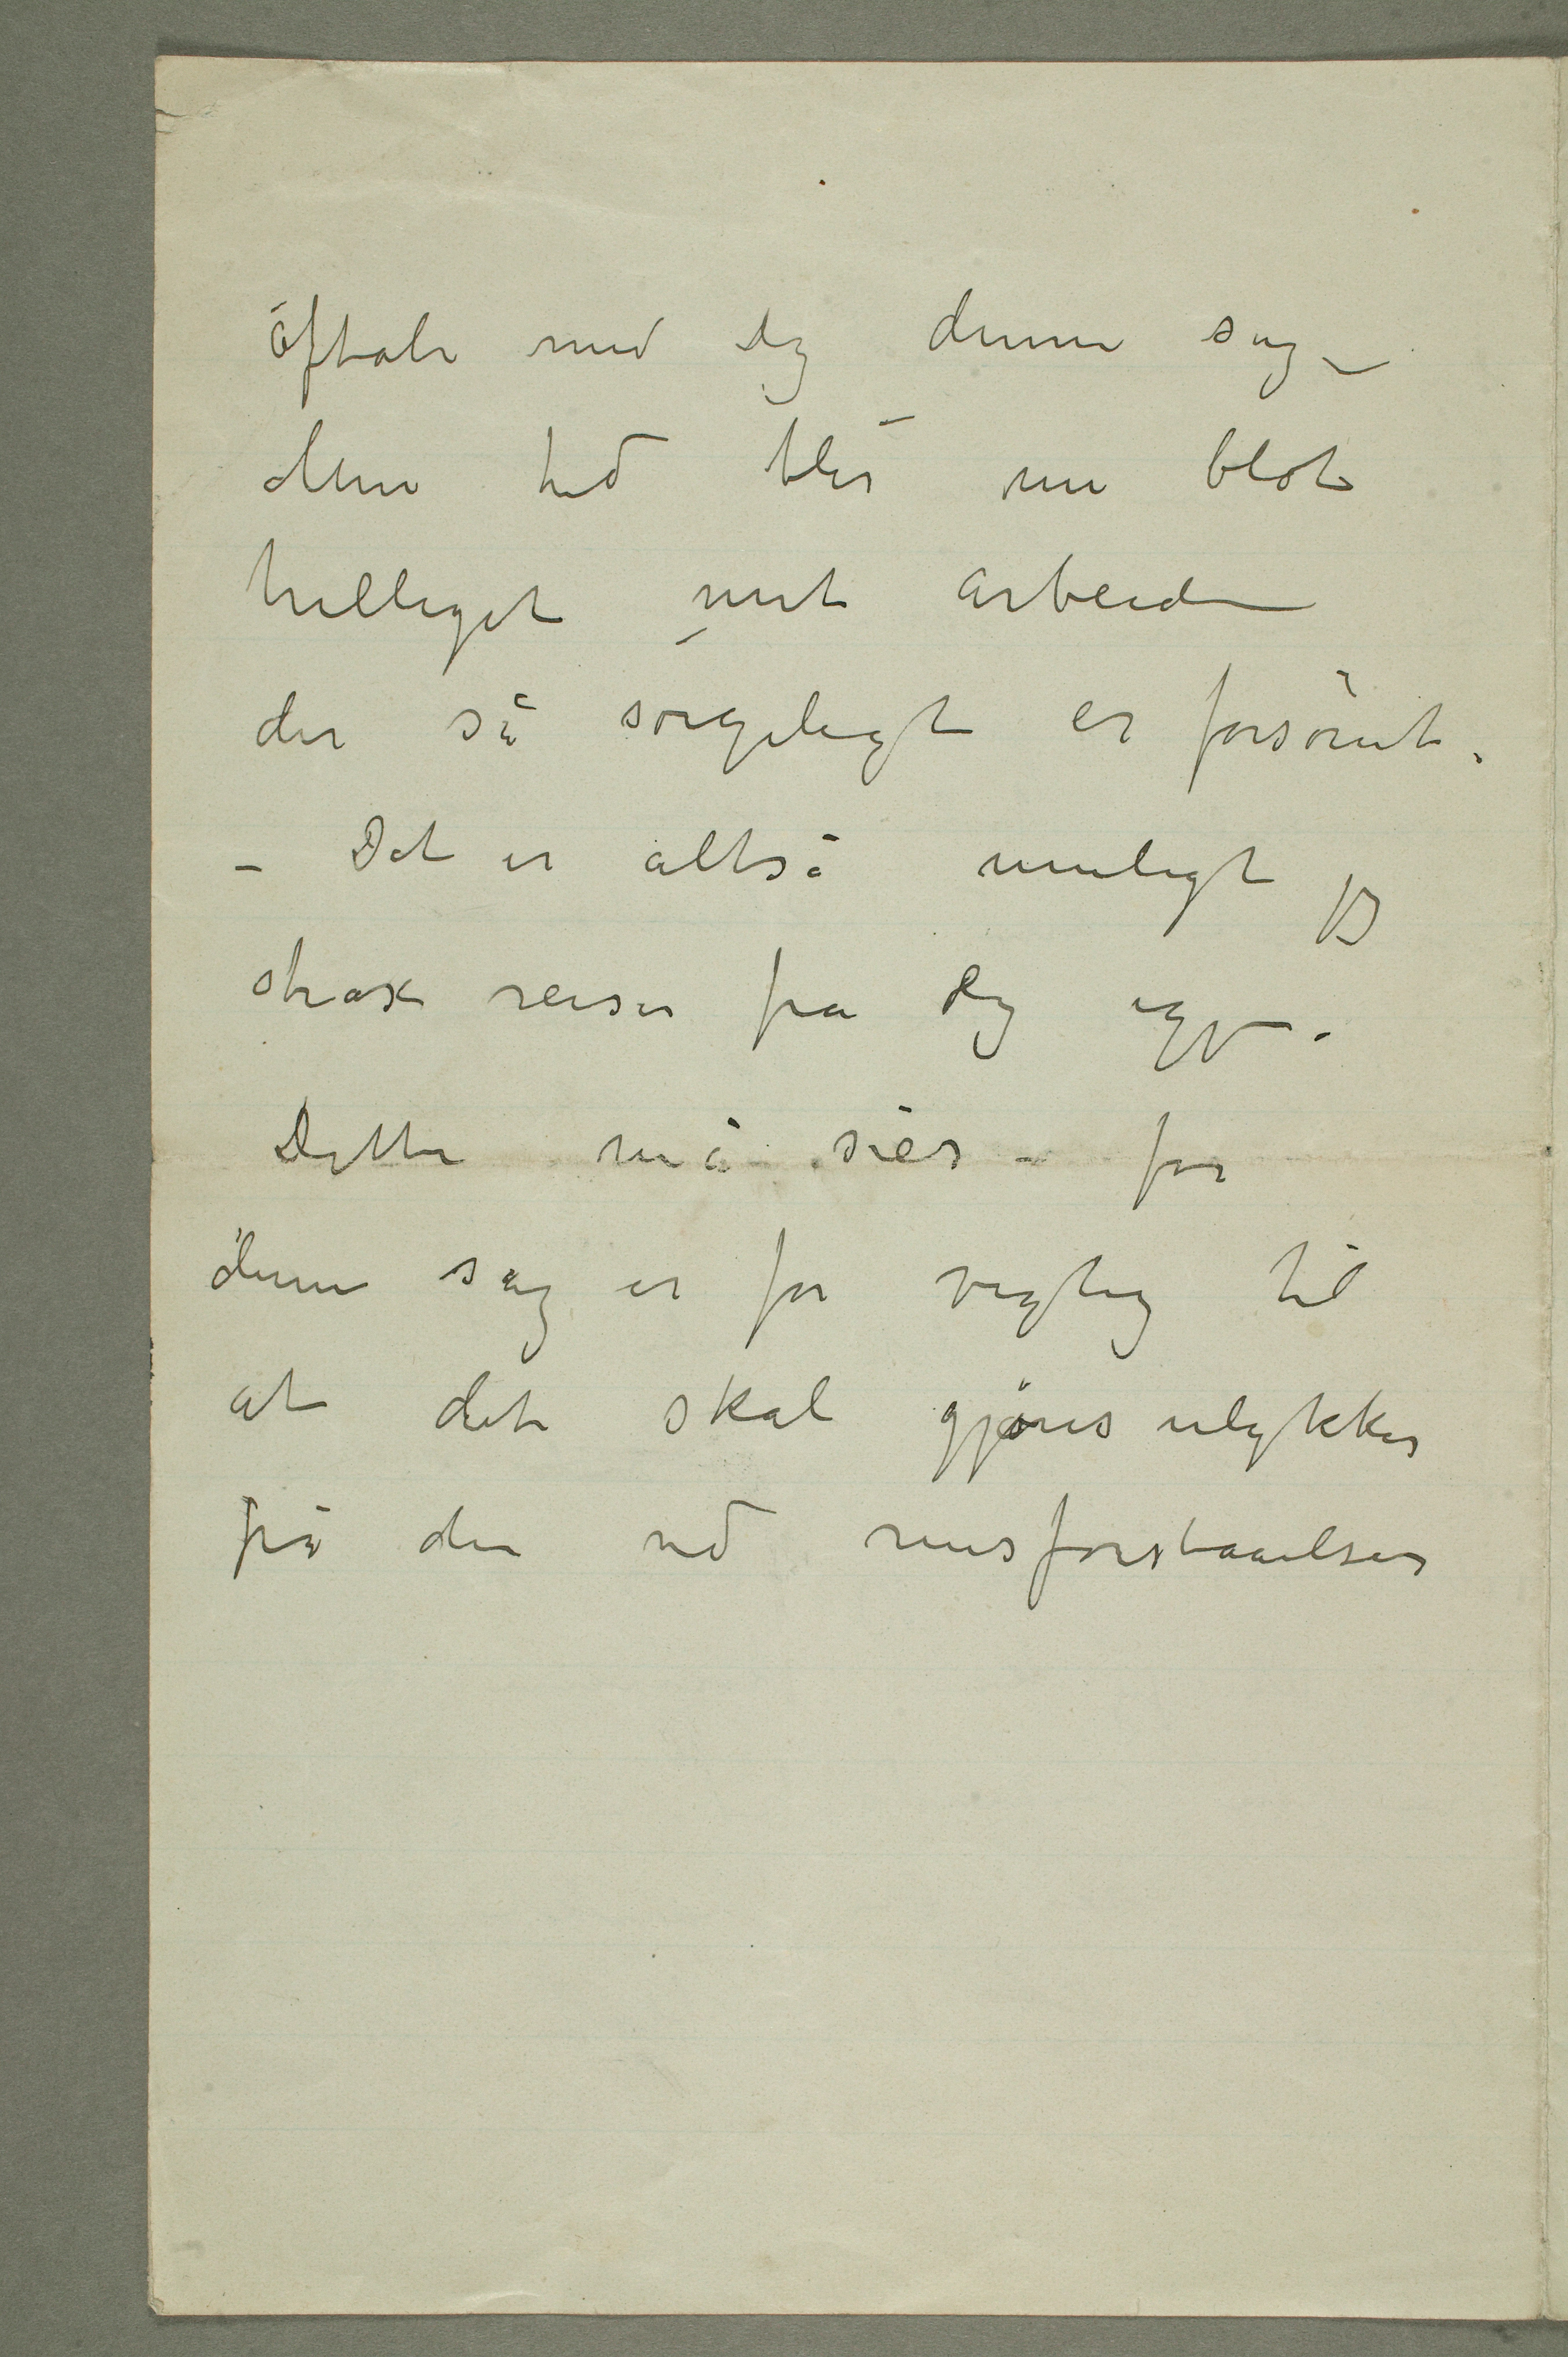 aftale med Dig denne sag –
Min tid blir nu blot
helliget mit arbeide
der så sørgeligt er forsømt.
– Det er altså muligt jeg
strax reiser fra Dig igjen.
Dette må sies – for
denne sag er for vigtig til
at det skal gjøres ulykker
på den ved misforstaaelser